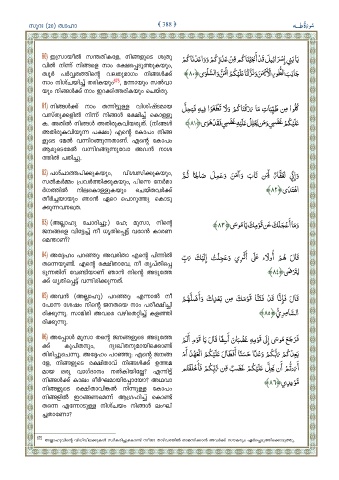 സൂറ: (20) ത്വാഹാ
{ 388 }
سُورَةُ طه
80) ഇസ്രായീൽ സന്തതികളേ, നിങ്ങളുടെ ശത്രു
വിൽ നിന്ന് നിങ്ങളെ നാം രക്ഷപ്പെടുത്തുകയും,
ത്വൂർ പർവ്വതത്തിന്റെ വലതുഭാഗം നിങ്ങൾക്ക്
നാം നിശ്ചയിച്ച് തരികയും, മന്നായും സൽവാ
യും നിങ്ങൾക്ക് നാം ഇറക്കിത്തരികയും ചെയ്തു.
يَا بَنِي إِسْرَائِيلَ قَدْ أَنْجَيْنَاكُمْ مِنْ عَدُوِّكُمْ وَوَاعَدْنَاكُمْ
جَانِبَ الطُّورِ الْأَيْمَنَ وَنَزَّلْنَا عَلَيْكُمُ الْمَنَّ وَالسَّلْوَى ﴿٨٠﴾
81) നിങ്ങൾക്ക് നാം തന്നിട്ടുള്ള വിശിഷ്ടമായ
വസ്തുക്കളിൽ നിന്ന് നിങ്ങൾ ഭക്ഷിച്ച് കൊള്ളു
ക. അതിൽ നിങ്ങൾ അതിരുകവിയരുത്. (നിങ്ങൾ
അതിരുകവിയുന്ന പക്ഷം) എന്റെ കോപം നിങ്ങ
ളുടെ മേൽ വന്നിറങ്ങുന്നതാണ്. എന്റെ കോപം
ആരുടെമേൽ വന്നിറങ്ങുന്നുവോ അവൻ നാശ
ത്തിൽ പതിച്ചു.
كُلُوا مِنْ طَيِّبَاتِ مَا رَزَقْنَاكُمْ وَلَا تَطْغَوْا فِيهِ فَيَحِلَّ
عَلَيْكُمْ غَضَبِي وَمَنْ يَحْلِلْ عَلَيْهِ غَضَبِي فَقَدْ هَوَى ﴿٨١﴾
82) പശ്ചാത്തപിക്കുകയും, വിശ്വസിക്കുകയും,
സൽകർമ്മം പ്രവർത്തിക്കുകയും, പിന്നെ നേർമാ
ർഗത്തിൽ നിലകൊള്ളുകയും ചെയ്തവർക്ക്
തീർച്ചയായും ഞാൻ ഏറെ പൊറുത്തു കൊടു
ക്കുന്നവനത്രെ.
وَإِنِّي لَغَفَّارٌ لِمَنْ تَابَ وَآمَنَ وَعَمِلَ صَالِحًا ثُمَّ
اهْتَدَى ﴿٨٢﴾
83) (അല്ലാഹു ചോദിച്ചു:) ഹേ; മൂസാ, നിന്റെ
ജനങ്ങളെ വിട്ടേച്ച് നീ ധൃതിപ്പെട്ട് വരാൻ കാരണ
മെന്താണ്?
وَمَا أَعْجَلَكَ عَنْ قَوْمِكَ يَا مُوسَى ﴿٨٣﴾
84) അദ്ദേഹം പറഞ്ഞു: അവരിതാ എന്റെ പിന്നിൽ
തന്നെയുണ്ട്. എന്റെ രക്ഷിതാവേ, നീ തൃപ്തിപ്പെ
ടുന്നതിന് വേണ്ടിയാണ് ഞാൻ നിന്റെ അടുത്തേ
ക്ക് ധൃതിപ്പെട്ട് വന്നിരിക്കുന്നത്.
قَالَ هُمْ أُولَاءِ عَلَى أَثَرِي وَعَجِلْتُ إِلَيْكَ رَبِّ
لِتَرْضَى ﴿٨٤﴾
85) അവൻ (അല്ലാഹു) പറഞ്ഞു: എന്നാൽ നീ
പോന്ന ശേഷം നിന്റെ ജനതയെ നാം പരീക്ഷിച്ചി
രിക്കുന്നു. സാമിരി അവരെ വഴിതെറ്റിച്ച് കളഞ്ഞി
രിക്കുന്നു.
قَالَ فَإِنَّا قَدْ فَتَنَّا قَوْمَكَ مِنْ بَعْدِكَ وَأَضَلَّهُمُ
السَّامِرِيُّ ﴿٨٥﴾
86) അപ്പോൾ മൂസാ തന്റെ ജനങ്ങളുടെ അടുത്തേ
ക്ക് കുപിതനും, ദുഃഖിതനുമായിക്കൊണ്ട്
തിരിച്ചുചെന്നു. അദ്ദേഹം പറഞ്ഞു: എന്റെ ജനങ്ങ
ളേ, നിങ്ങളുടെ രക്ഷിതാവ് നിങ്ങൾക്ക് ഉത്തമ
മായ ഒരു വാഗ്ദാനം നൽകിയില്ലേ? എന്നിട്ട്
നിങ്ങൾക്ക് കാലം ദീർഘമായിപ്പോയോ? അഥവാ
നിങ്ങളുടെ രക്ഷിതാവിങ്കൽ നിന്നുള്ള കോപം
നിങ്ങളിൽ ഇറങ്ങണമെന്ന് ആഗ്രഹിച്ച് കൊണ്ട്
തന്നെ എന്നോടുള്ള നിശ്ചയം നിങ്ങൾ ലംഘി
ച്ചതാണോ?
فَرَجَعَ مُوسَى إِلَى قَوْمِهِ غَضْبَانَ أَسِفًا قَالَ يَا قَوْمِ أَلَمْ
يَعِدْكُمْ رَبُّكُمْ وَعْدًا حَسَنًا أَفَطَالَ عَلَيْكُمُ الْعَهْدُ أَمْ
أَرَدْتُمْ أَنْ يَحِلَّ عَلَيْكُمْ غَضَبٌ مِنْ رَبِّكُمْ فَأَخْلَفْتُمْ
مَوْعِدِي ﴿٨٦﴾